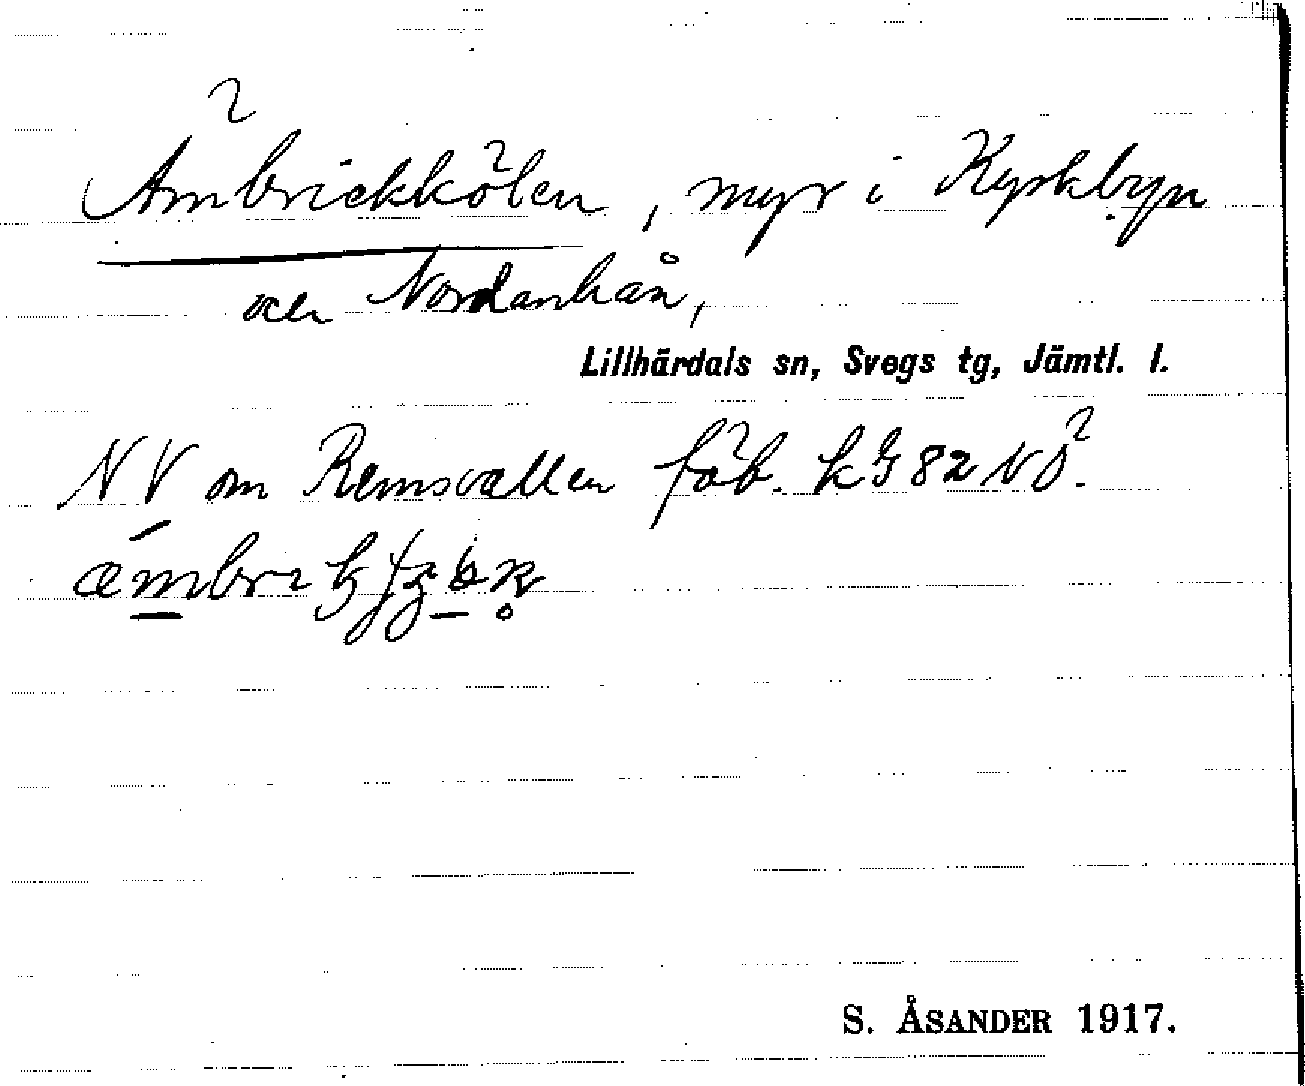 Ämbrickkölen, myr i Kyrkbyn
och Nordanhån,
Lillhärdals sn, Svegs tg, Jämtl. l.
NV om Remsvallen fäb. kG 82 NÖ.
S. ÅSANDER 1917.